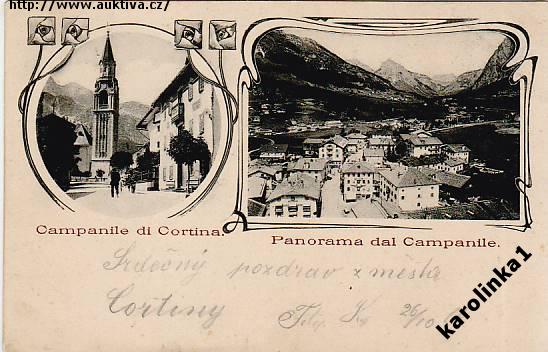 http://www.auktiva.cz/
Campanile di Cortina.
Panorama dal Campanile.
Srdečný pozdrav z města
Cortiny
26/10
karolinka1